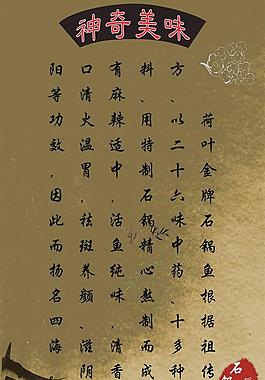 神奇美味
荷叶金牌石锅鱼根据祖传
方、以二十六味中药、十多种
抖、用特制石锅精心熬制而成
有麻辣适中，活鱼纯味，清香
口清火温胃，祛斑养颜、滋阴
阳等功效，因此而扬名四海
石